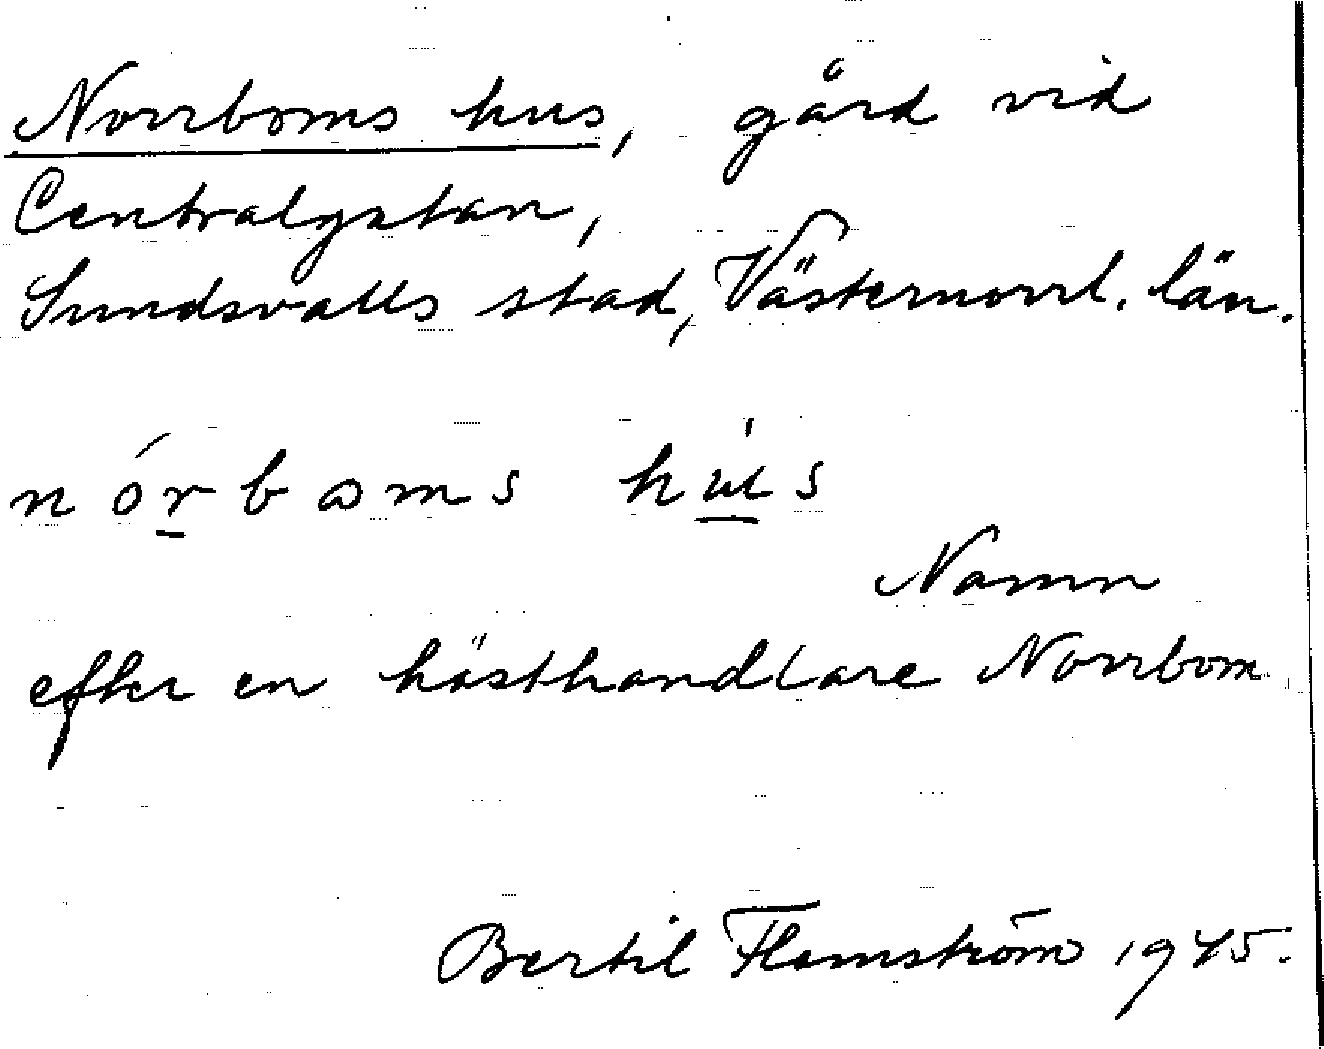 Norrboms hus, gård vid
Centralgatan,
Sundsvalls stad, Västernorrl. län.
nórboms hús
Namn
efter en hästhandlare Norrbom
Bertil Flemström 1945.